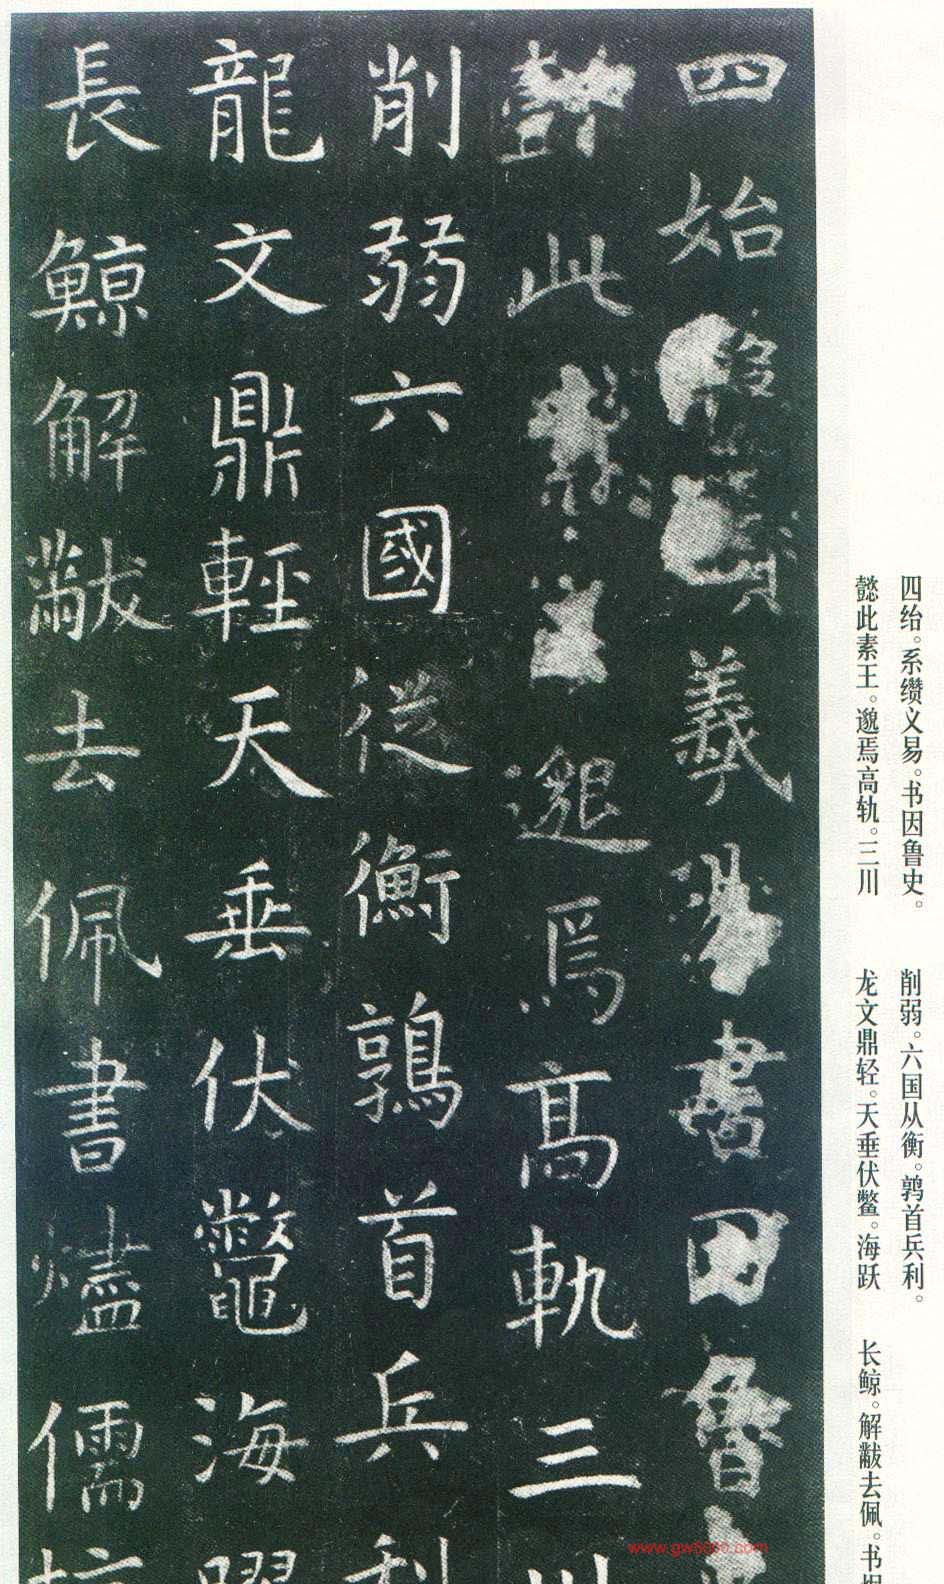 四始羲易書因魯
懿此素王邈焉高軌三川
削弱六國從衡鶉首兵利
龍文鼎輕天垂伏鼈海躍
長鯨解黻去佩書燼儒坑
四绐。系缵义易。书因鲁史。
懿此素王。邈焉高轨。三川
削弱。六国从衡。鹑首兵利。
龙文鼎轻。天垂伏鳖。海跃
长鲸。解黻去佩。书
www.gw8000.com